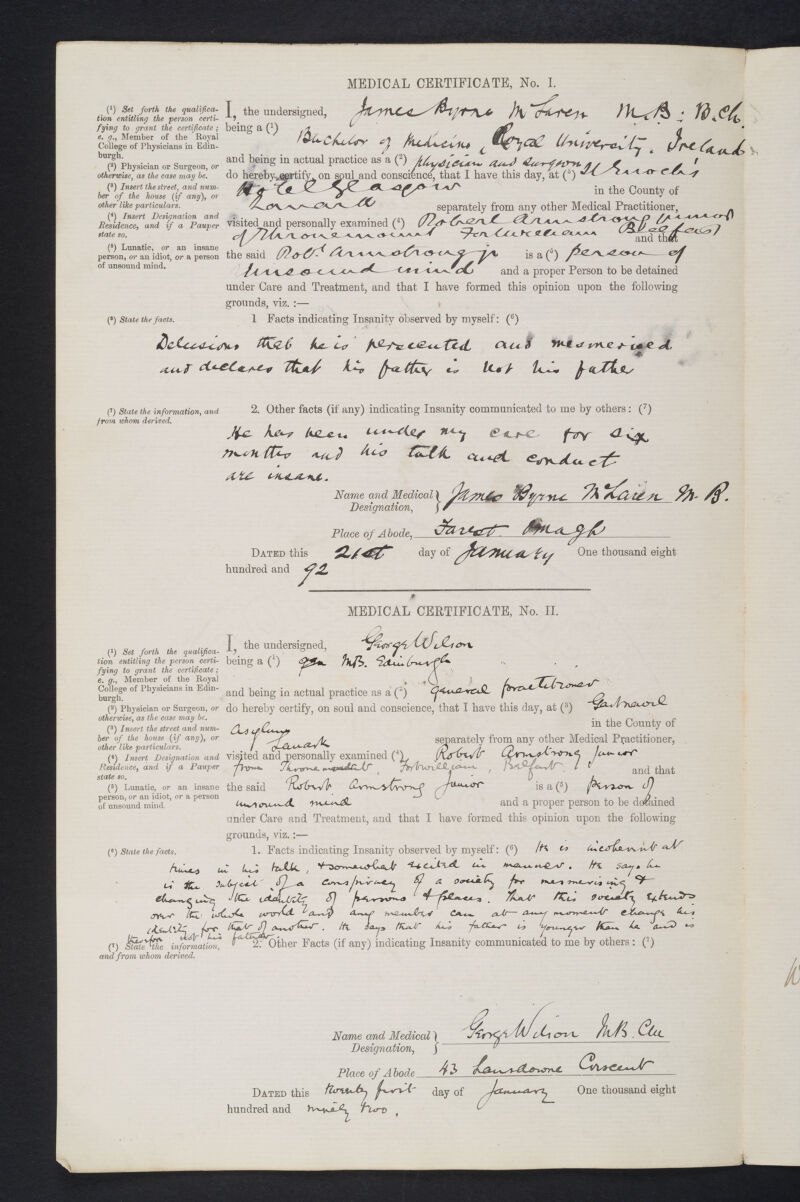 MEDICAL CERTIFICATE, No. I.
(¹) Set forth the qualifica-
tion entitling the person certi-
fying to grant the certificate;
e. g., Member of the Royal
College of Physicians in Edin-
burgh.
(²) Physician or Surgeon, or
otherwise, as the case may be.
(³) Insert the street, and num-
ber of the house (if any), or
other like particulars.
(⁴) Insert Designation and
Residence, and if a Pauper
state so.
(⁵) Lunatic, or an insane
person, or an idiot, or a person
of unsound mind.
I, the undersigned, James Byrne McLaren M.B: B.Ch.
being a (¹) Bachelor of Medicine, Royal University. Ireland
and being in actual practice as a (²) physician and surgeon
do hereby certify, on soul and conscience, that I have this day, at (³) St Enoch's
Hotel Glasgow in the County of
Lanark separately from any other Medical Practitioner,
visited and personally examined (⁴) Robert Armstrong junior
of Thronemount Fortwilliam Belfast and that
the said Robt. Armstrong jr is a (⁵) person of
unsound mind and a proper Person to be detained
under Care and Treatment, and that I have formed this opinion upon the following
grounds, viz.:—
(⁶) State the facts.
1 Facts indicating Insanity observed by myself: (⁶)
Delusions that he is persecuted and mesmerised
and declares that his father is not his father
(⁷) State the information, and
from whom derived.
2. Other facts (if any) indicating Insanity communicated to me by others: (⁷)
He has been under my care for six
months and his talk and conduct
are insane.
Name and Medical Designation, James Byrne McLaren M.B.
Place of Abode, Omagh
DATED this 21st day of January One thousand eight
hundred and 92
MEDICAL CERTIFICATE, No. II.
(¹) Set forth the qualifica-
tion entitling the person certi-
fying to grant the certificate;
e. g., Member of the Royal
College of Physicians in Edin-
burgh.
(²) Physician or Surgeon, or
otherwise, as the case may be.
(³) Insert the street and num-
ber of the house (if any), or
other like particulars.
(⁴) Insert Designation and
Residence, and if a Pauper
state so.
(⁵) Lunatic, or an insane
person, or an idiot, or a person
of unsound mind.
I, the undersigned, George Wilson
being a (¹) MB. Edinburgh
and being in actual practice as a (²) general practitioner
do hereby certify, on soul and conscience, that I have this day, at (³) Gartnavel
Asylum in the County of
Lanark separately from any other Medical Practitioner,
visited and personally examined (⁴) Robert Armstrong Junior
from Thronemount, Fortwilliam, Belfast. and that
the said Robert Armstrong Junior is a (⁵) person of
unsound mind and a proper person to be detained
under Care and Treatment, and that I have formed this opinion upon the following
grounds, viz.:—
(⁶) State the facts.
1. Facts indicating Insanity observed by myself: (⁶) He is incoherent at
times in his talk, & somewhat excited in manner. He says he
is the subject of a conspiracy of a society for mesmerising &
changing the identity of persons & places. That this society extends
over the whole world and any member can at any moment change his
identity for that of another. He says that his father is younger than he and is
therefore not his father.
(⁷) State the information,
and from whom derived.
2. Other Facts (if any) indicating Insanity communicated to me by others: (⁷)
Name and Medical Designation, George Wilson MB. CM
Place of Abode 43 Lansdowne Crescent
DATED this twenty first day of January One thousand eight
hundred and ninety two.